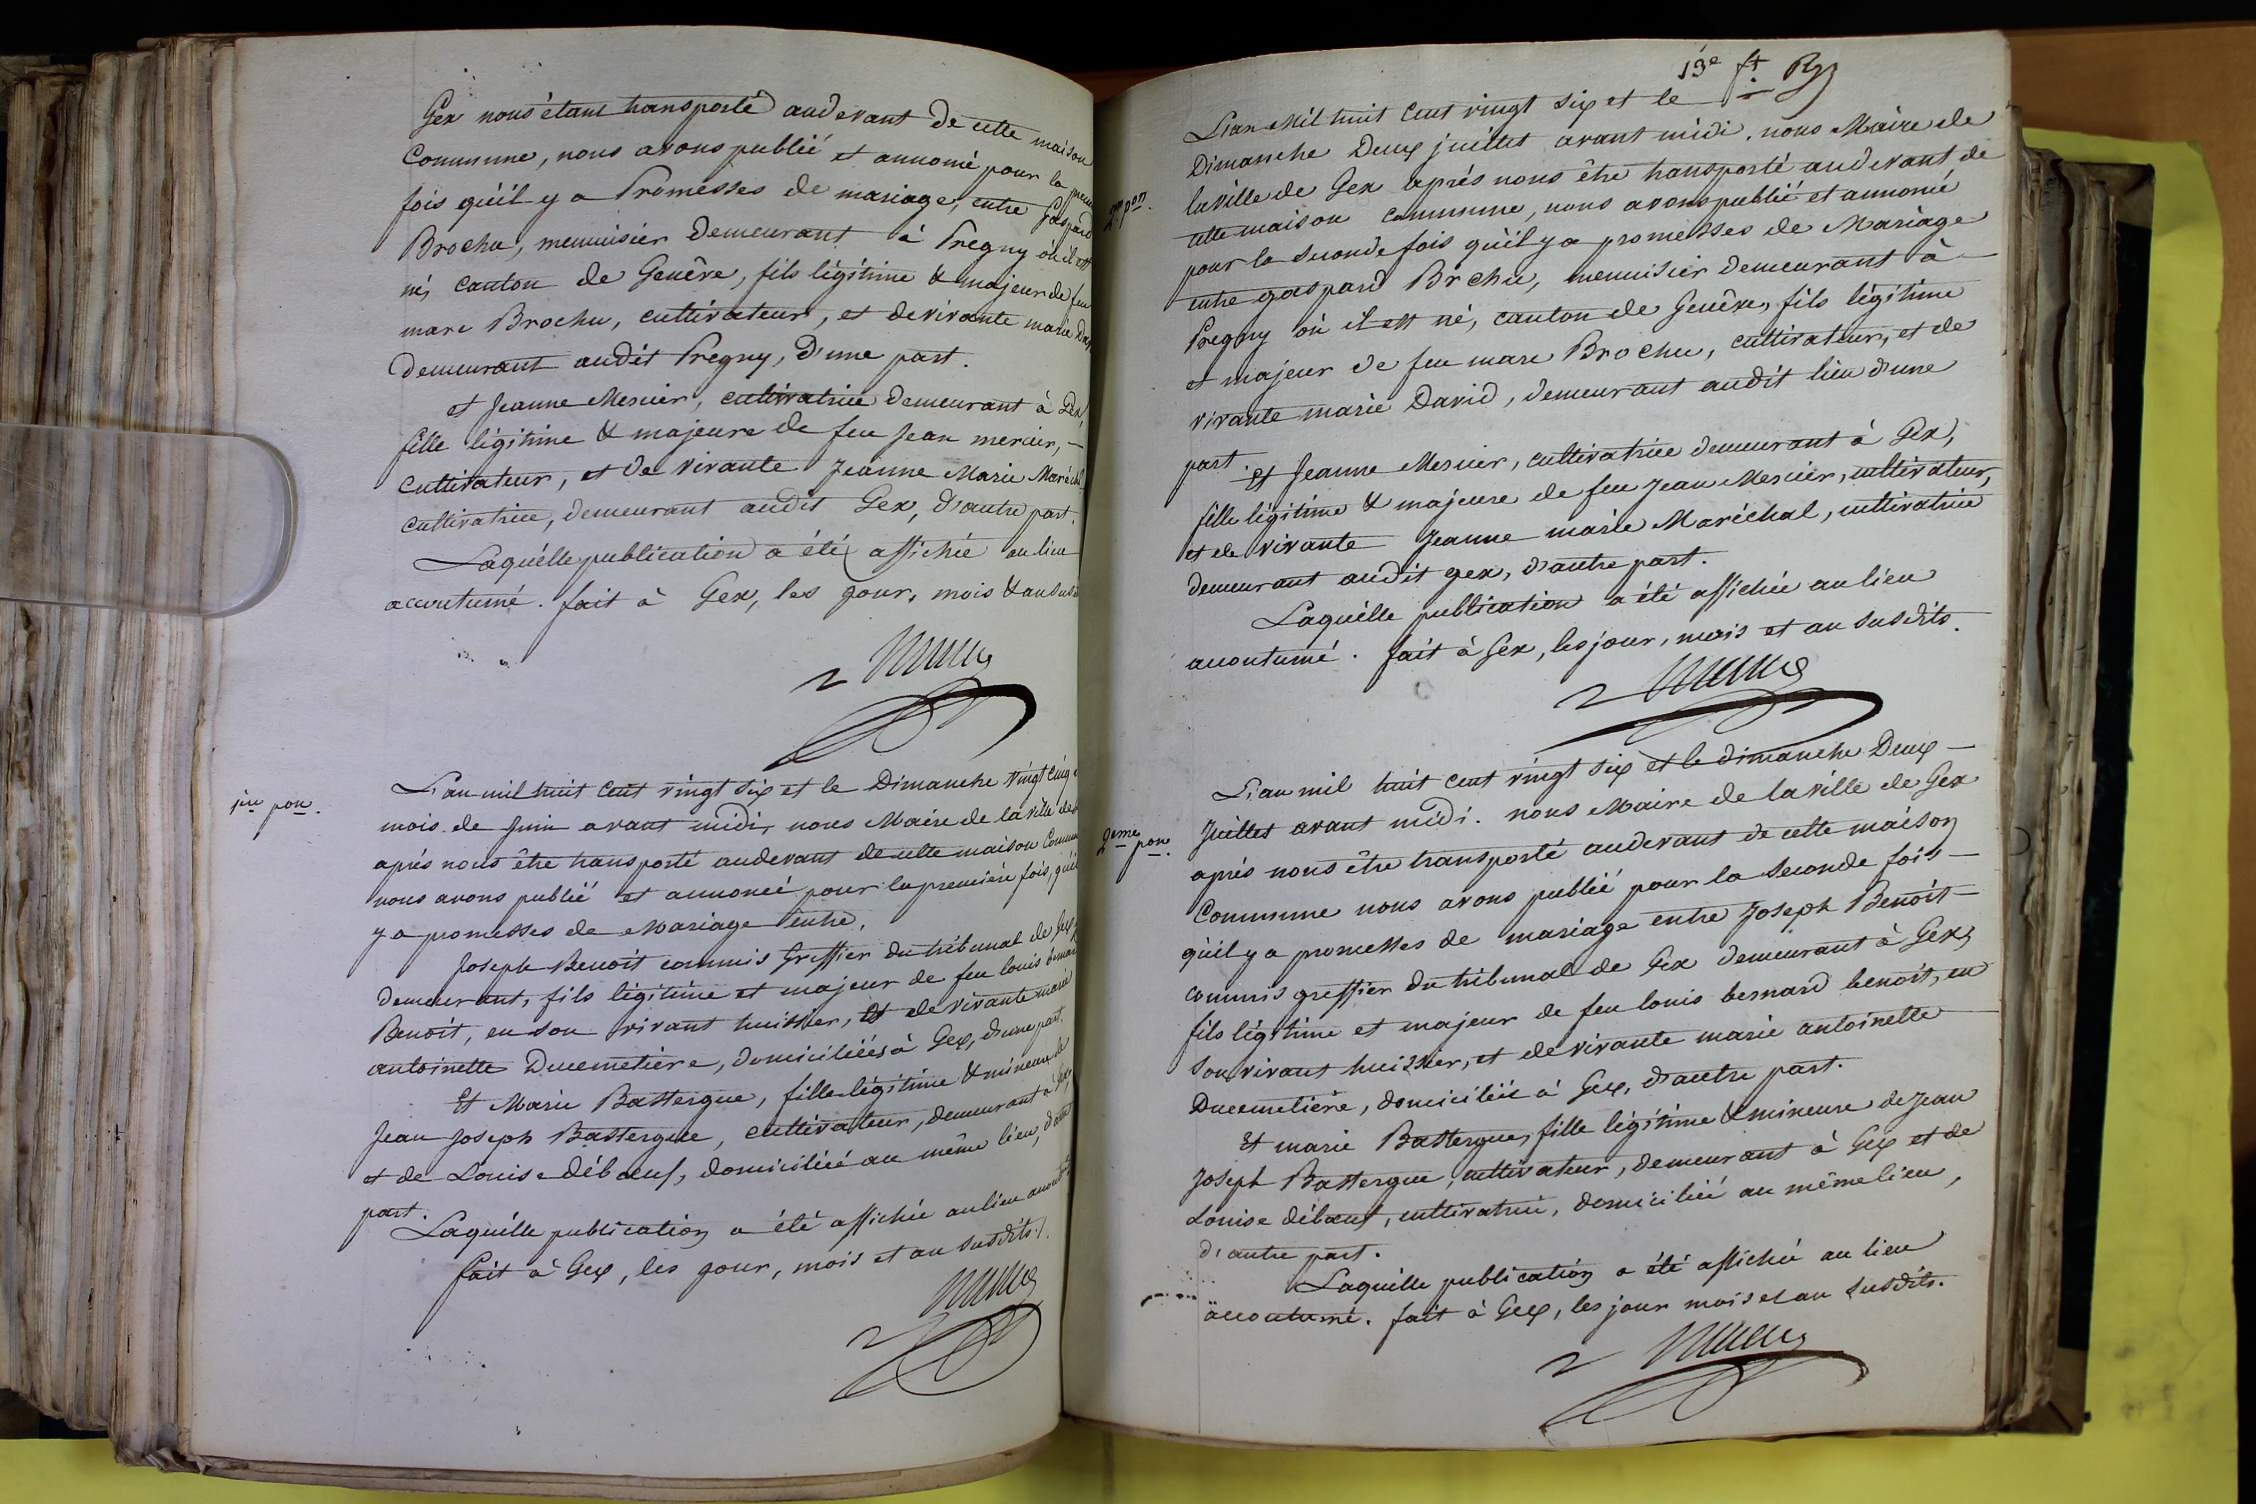 Gex nous étant transporté audevant de cette maison
Commune, nous avons publié et annoncé pour la
fois qu'il y a Promesses de mariage, entre Gaspard
Brochu, menuisier demeurant à Pregny où il est
né, canton de Genêve, fils légitime & majeur de feu
marc Brochu, cultivateur, et de vivante marie
demeurant audit Pregny, d'une part.
et Jeanne Mercier, cultivatrice demeurant à Gex,
fille légitime & majeure de feu Jean mercier, —
cultivateur, et de vivante Jeanne Marie
cultivatrice, demeurant audit Gex, d'autre part.
Laquélle publication a été affichée au lieu
accoutumé. fait à Gex, les jour, mois & an
1ere pon.
L'an mil huit cent vingt six et le Dimanche vingt cinq
mois de Juin avant midi, nous Maire de la ville de
après nous être transporté audevant de cette maison
nous avons publié et annoncé pour la première fois, qu'il
y a promesses de Mariage entre,
Joseph Benoit commis Greffier du tribunal de Gex
demeurant, fils légitime et majeur de feu louis
Benoit, en son vivant huissier, et de vivante marie
antoinette Ducemetière, domiciliés à Gex, d'une part.
Et Marie Battergue, fille légitime & mineure de
Jean Joseph Battergue, cultivateur, demeurant à Gex
et de Louise débœuf, domiciliée au même lieu, d'autre
part.
Laquélle publication a été affichée au lieu
fait à Gex, les jour, mois et an susdits.
13e ft.
L'an Mil huit cent vingt six et le
Dimanche Deux juillet avant midi. nous Maire de
la ville de Gex après nous être transporté audevant de
2me pon.
cette maison commune, nous avons publié et annoncé
pour la seconde fois qu'il y a promesses de Mariage
entre gaspard Brchu, menuisier demeurant à —
Pregny où il est né, canton de Genêve, fils légitime
et majeur de feu marc Brochu, cultivateur, et de
vivante marie David, demeurant audit lieu d'une
part.
et Jeanne Mercier, cultivatrice demeurant à Gex,
fille légitime & majeure de feu Jean Mercier, cultivateur,
et de vivante Jeanne marie Maréchal, cultivatrice
demeurant audit gex, d'autre part.
Laquélle publication a été affichée au lieu
accoutumé. fait à Gex, les jour, mois et an susdits.
L'an mil huit cent vingt six et le dimanche Deux —
Juillet avant midi. nous Maire de la ville de Gex
2eme pon.
après nous être transporté audevant de cette maison
Commune nous avons publié pour la seconde fois —
qu'il y a promesses de mariage entre Joseph Benoit —
commis greffier du tribunal de Gex demeurant à Gex,
fils légitime et majeur de feu louis bernard benoit, en
son vivant huissier, et de vivante marie antoinette
Ducemetière, domiciliée à Gex, d'autre part.
Et marie Battergue, fille légitime & mineure de Jean
Joseph Battergue, cultivateur, demeurant à Gex et de
Louise débœuf, cultivatrice, domiciliée au même lieu,
d'autre part.
Laquélle publication a été affichée au lieu
accoutumé. fait à Gex, les jour mois et an susdits.